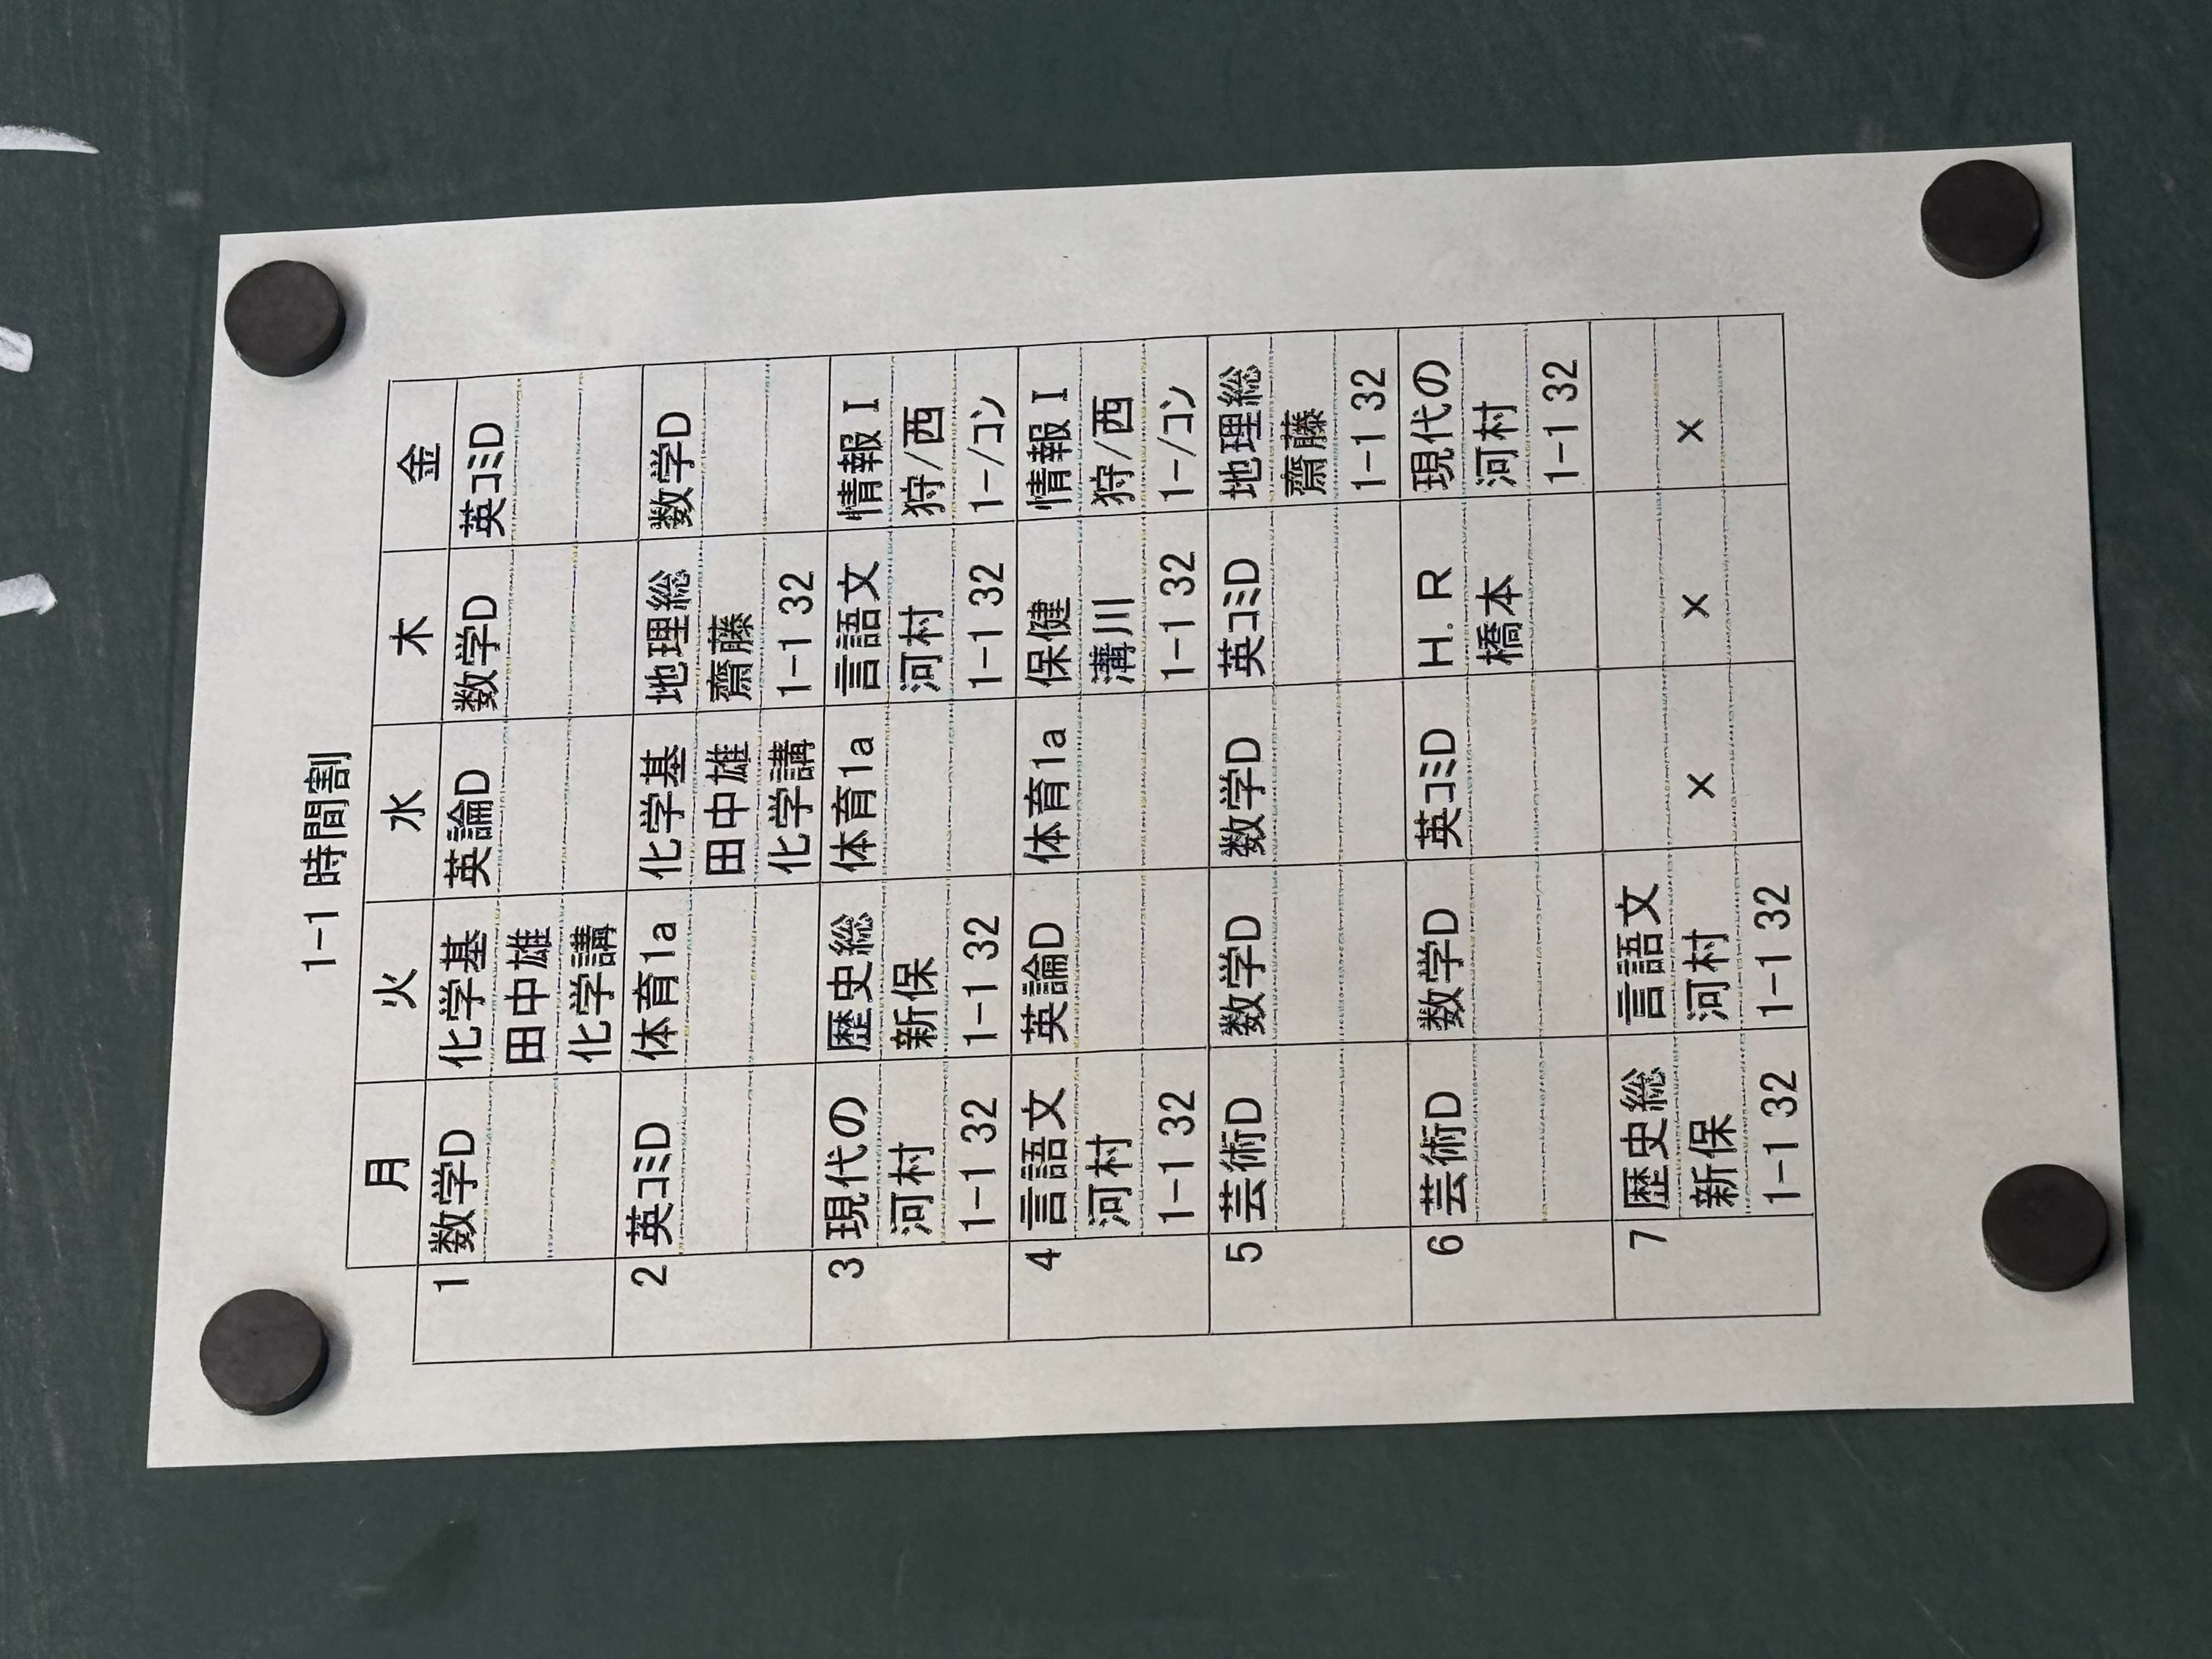 1-1 時間割
月 火 水 木 金
1 数学D 化学基 英論D 数学D 英コミD
田中雄
化学講
2 英コミD 体育1a 化学基 地理総 数学D
田中雄 齋藤
化学講 1-1 32
3 現代の 歴史総 体育1a 言語文 情報Ⅰ
河村 新保 河村 狩/西
1-1 32 1-1 32 1-1 32 1-/コン
4 言語文 英論D 体育1a 保健 情報Ⅰ
河村 溝川 狩/西
1-1 32 1-1 32 1-/コン
5 芸術D 数学D 数学D 英コミD 地理総
齋藤
1-1 32
6 芸術D 数学D 英コミD H.R 現代の
橋本 河村
1-1 32
7 歴史総 言語文
新保 河村 × × ×
1-1 32 1-1 32